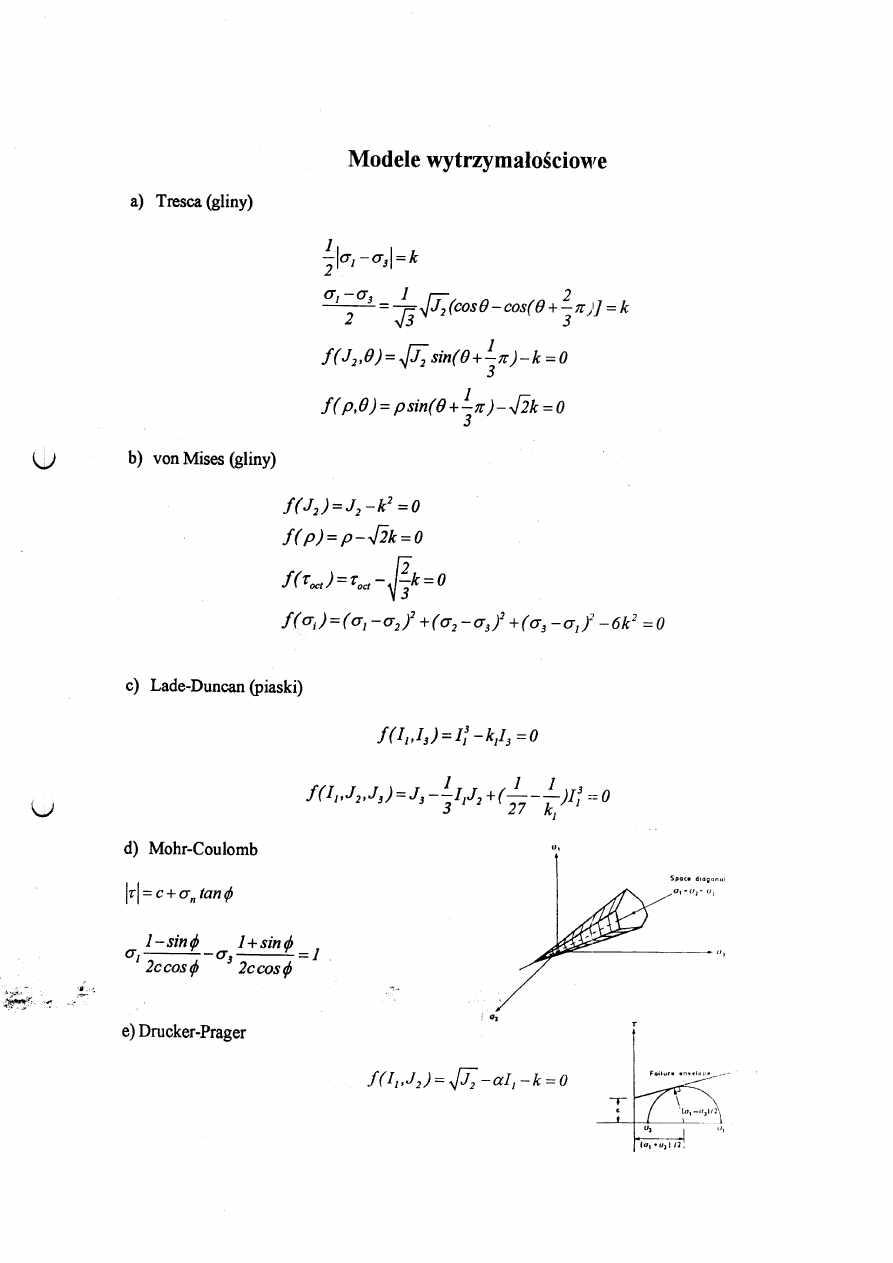 Modele wytrzymałościowe
a) Tresca (gliny)
1/2|σ₁ − σ₃| = k
(σ₁ − σ₃)/2 = 1/√3 √J₂ (cosθ − cos(θ + 2/3 π)] = k
f(J₂,θ) = √J₂ sin(θ + 1/3 π) − k = 0
f(ρ,θ) = ρ sin(θ + 1/3 π) − √2k = 0
b) von Mises (gliny)
f(J₂) = J₂ − k² = 0
f(ρ) = ρ − √2k = 0
f(τ_oct) = τ_oct − √(2/3) k = 0
f(σᵢ) = (σ₁ − σ₂)² + (σ₂ − σ₃)² + (σ₃ − σ₁)² − 6k² = 0
c) Lade-Duncan (piaski)
f(I₁,I₃) = I₁³ − k₁I₃ = 0
f(I₁,J₂,J₃) = J₃ − 1/3 I₁J₂ + (1/27 − 1/k₁)I₁³ = 0
d) Mohr-Coulomb
|τ| = c + σₙ tan ϕ
σ₁ (1 − sin ϕ)/(2c cos ϕ) − σ₃ (1 + sin ϕ)/(2c cos ϕ) = 1
σ₁
Space diagonal
e) Drucker-Prager
f(I₁,J₂) = √J₂ − αI₁ − k = 0
τ
Failure envelope
c
(σ₁ − σ₃)/2
σ₃
σ₁
(σ₁ + σ₃)/2